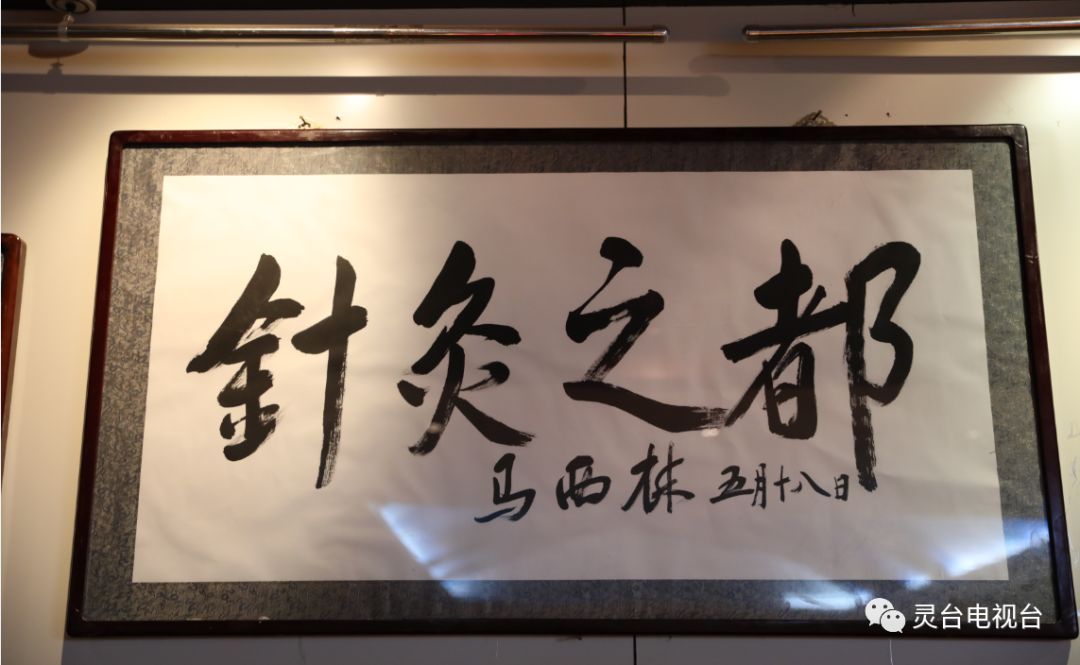 針灸之都
马西林 五月十八日
灵台电视台